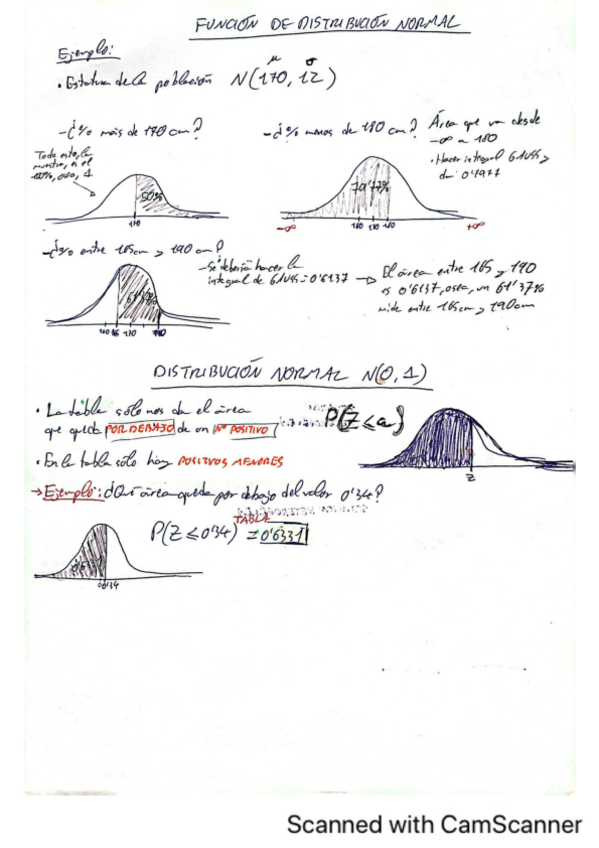 FUNCIÓN DE DISTRIBUCIÓN NORMAL
Ejemplo:
μ σ
• Estatura de la población N(170, 12)
-¿% más de 170 cm?
-¿% menos de 180 cm?
Área que va desde
-∞ a 180
• Hacer integral GAUSS y
da 0'7977
Todo esto, la
muestra, es el
100%, osea, 1
50%
170
79'77%
160 170 180
-∞
+∞
-¿% entre 165cm y 190 cm?
-Se debería hacer la
integral de GAUSS = 0'6137 → El área entre 165 y 190
es 0'6137, osea, un 61'37%
mide entre 165cm y 190cm
61'37%
170
190
DISTRIBUCIÓN NORMAL N(0,1)
• La tabla sólo nos da el área
que queda POR DEBAJO de un Nº POSITIVO
P(Z ≤ a)
z
• En la tabla sólo hay POSITIVOS MENORES
→ Ejemplo: ¿Qué área queda por debajo del valor 0'34?
TABLA
P(Z ≤ 0'34) = 0'6331
0'6331
0'34
Scanned with CamScanner